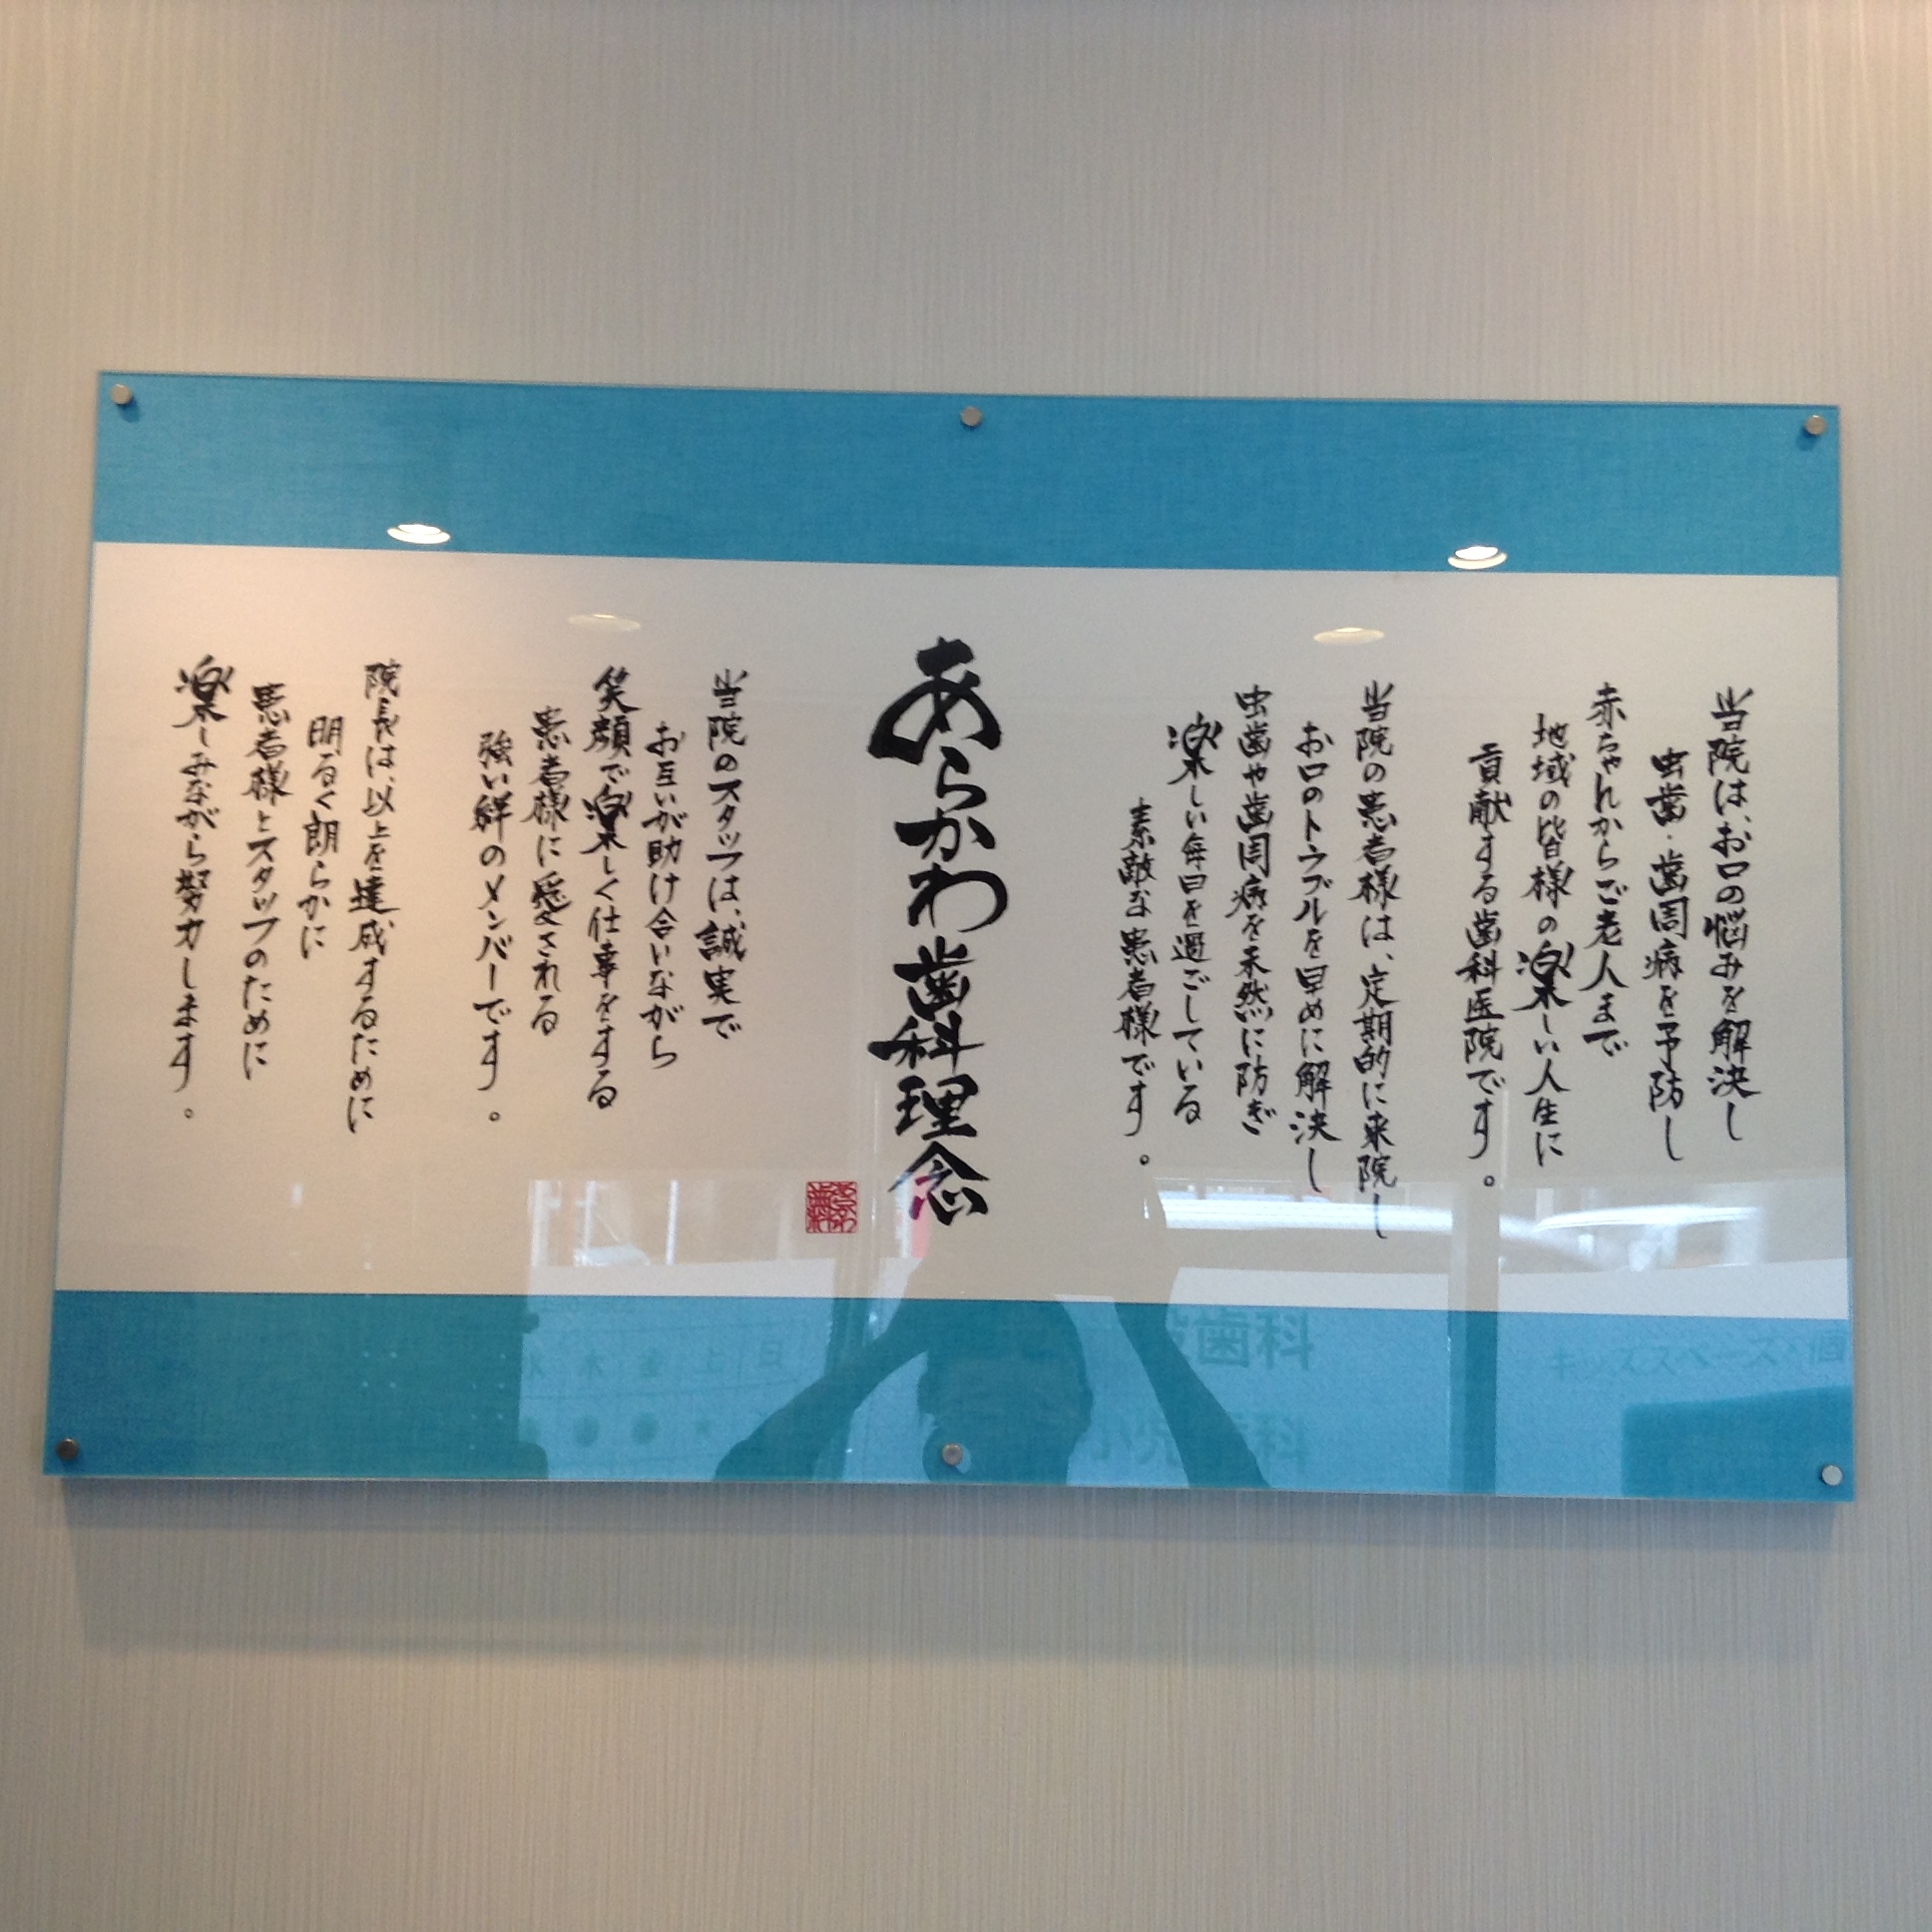 当院は、お口の悩みを解決し
虫歯・歯周病を予防し
赤ちゃんからご老人まで
地域の皆様の楽しい人生に
貢献する歯科医院です。
当院の患者様は、定期的に来院し
お口のトラブルを早めに解決し
虫歯や歯周病を未然に防ぎ
楽しい毎日を過ごしている
素敵な患者様です。
あらかわ歯科理念
当院のスタッフは、誠実で
お互いが助け合いながら
笑顔で楽しく仕事をする
患者様に愛される
強い絆のメンバーです。
院長は、以上を達成するために
明るく朗らかに
患者様とスタッフのために
楽しみながら努力します。
歯科
小児歯科
キッズスペース・個
木金土日